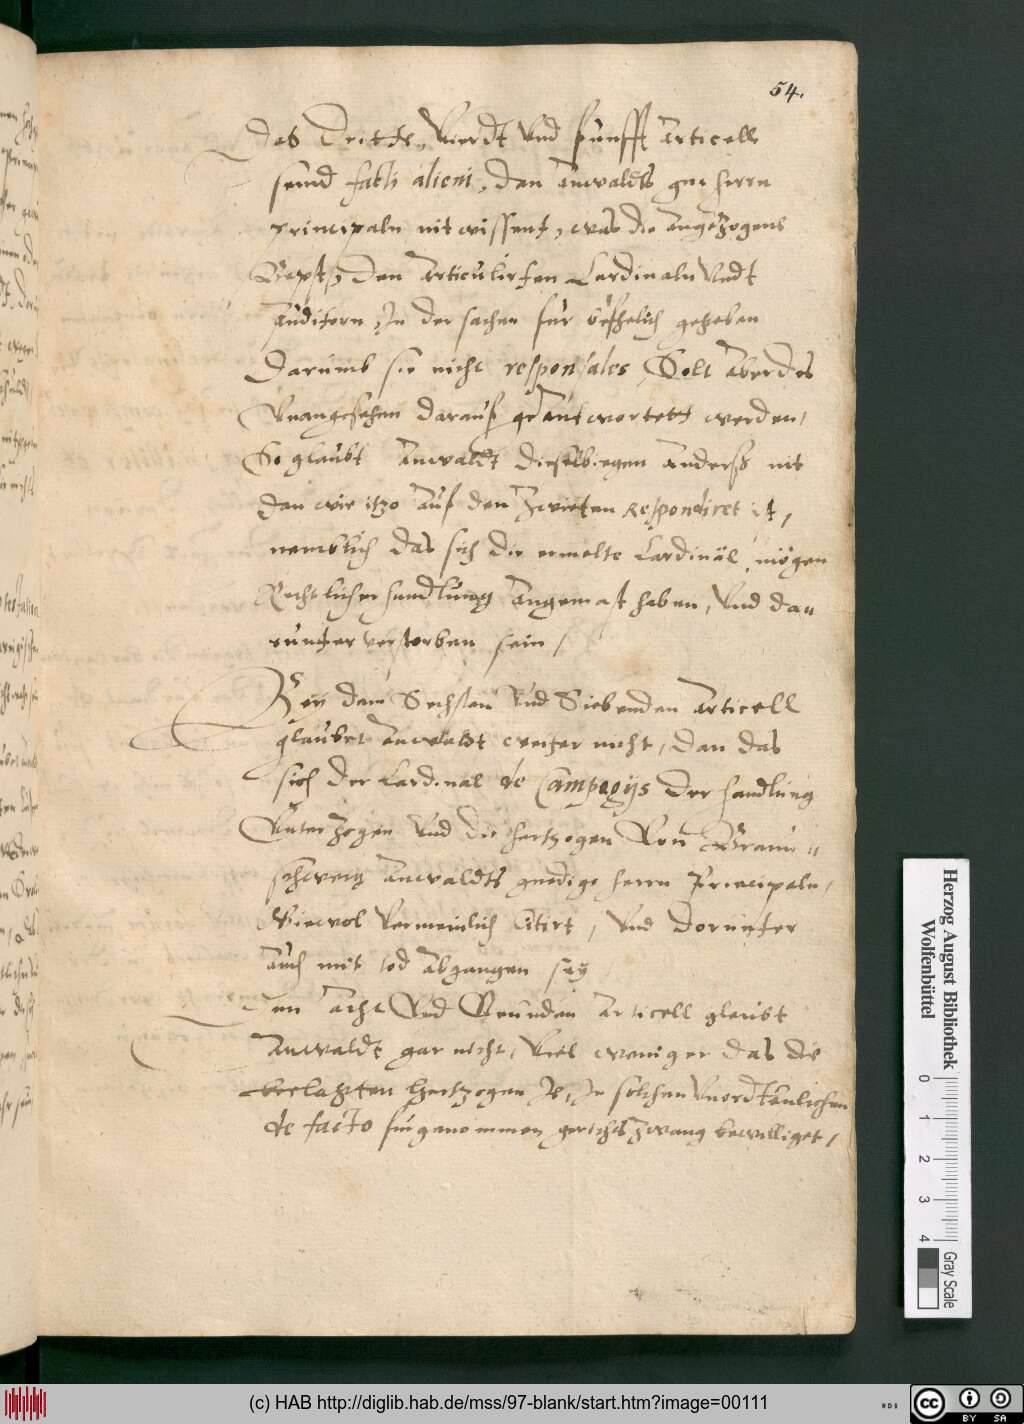 54.
Das Dritte, Vierdt Vnd funfft Articell
seind facti alieni, dan Anwaldts gne hern
principaln nit wissent, was die Angezogens
Bepst, den Articulirten Cardinaln Vndt
Auditorn, In der sachen fur gegeben
Darumb sie nicht responsales, Solt Aber des
Vnangesehen darauf geAntwortett werden,
So glaubt Anwaldt dieselbiegen Anderß nit
dan wie itzo Auf den Zwieten Respondiret ist,
nemblich das sich die ermelte Cardinäl, mögen
Rechtlicher handlung Angemast haben, Vnd da"
runter verstorben sein,
Bey dem Sechsten Vnd Siebenden Articell
glaubet Anwaldt weiter nicht, dan das
sich der Cardinal de Campegijs der handlung
Vnterzogen Vnd die hertzogen Von Braun"
schweig Anwaldts gnedige hern Principaln,
Wiewol Vermeinlich Citirt, Vnd Dorunter
Auch mit tod Abgangen sey
Den Acht Vnd Neunden Articell gleubt
Anwaldt gar nicht, Viel weniger das die
beclagten Hertzogen In solchen Vnordtenlichen
de facto furgenommen gerichts zwang bewilliget,
Herzog August Bibliothek
Wolfenbüttel
0 1 2 3 4
Gray Scale
(c) HAB http://diglib.hab.de/mss/97-blank/start.htm?image=00111
cc BY SA